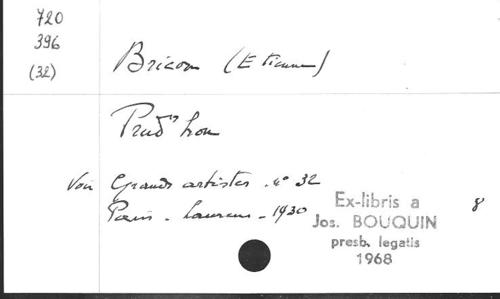 720
396
(32)
Bricon (Etienne)
Prud'hon
Voir Grands artistes. n° 32
Paris - Laurens - 1930
8
Ex-libris a
Jos. BOUQUIN
presb. legatis
1968